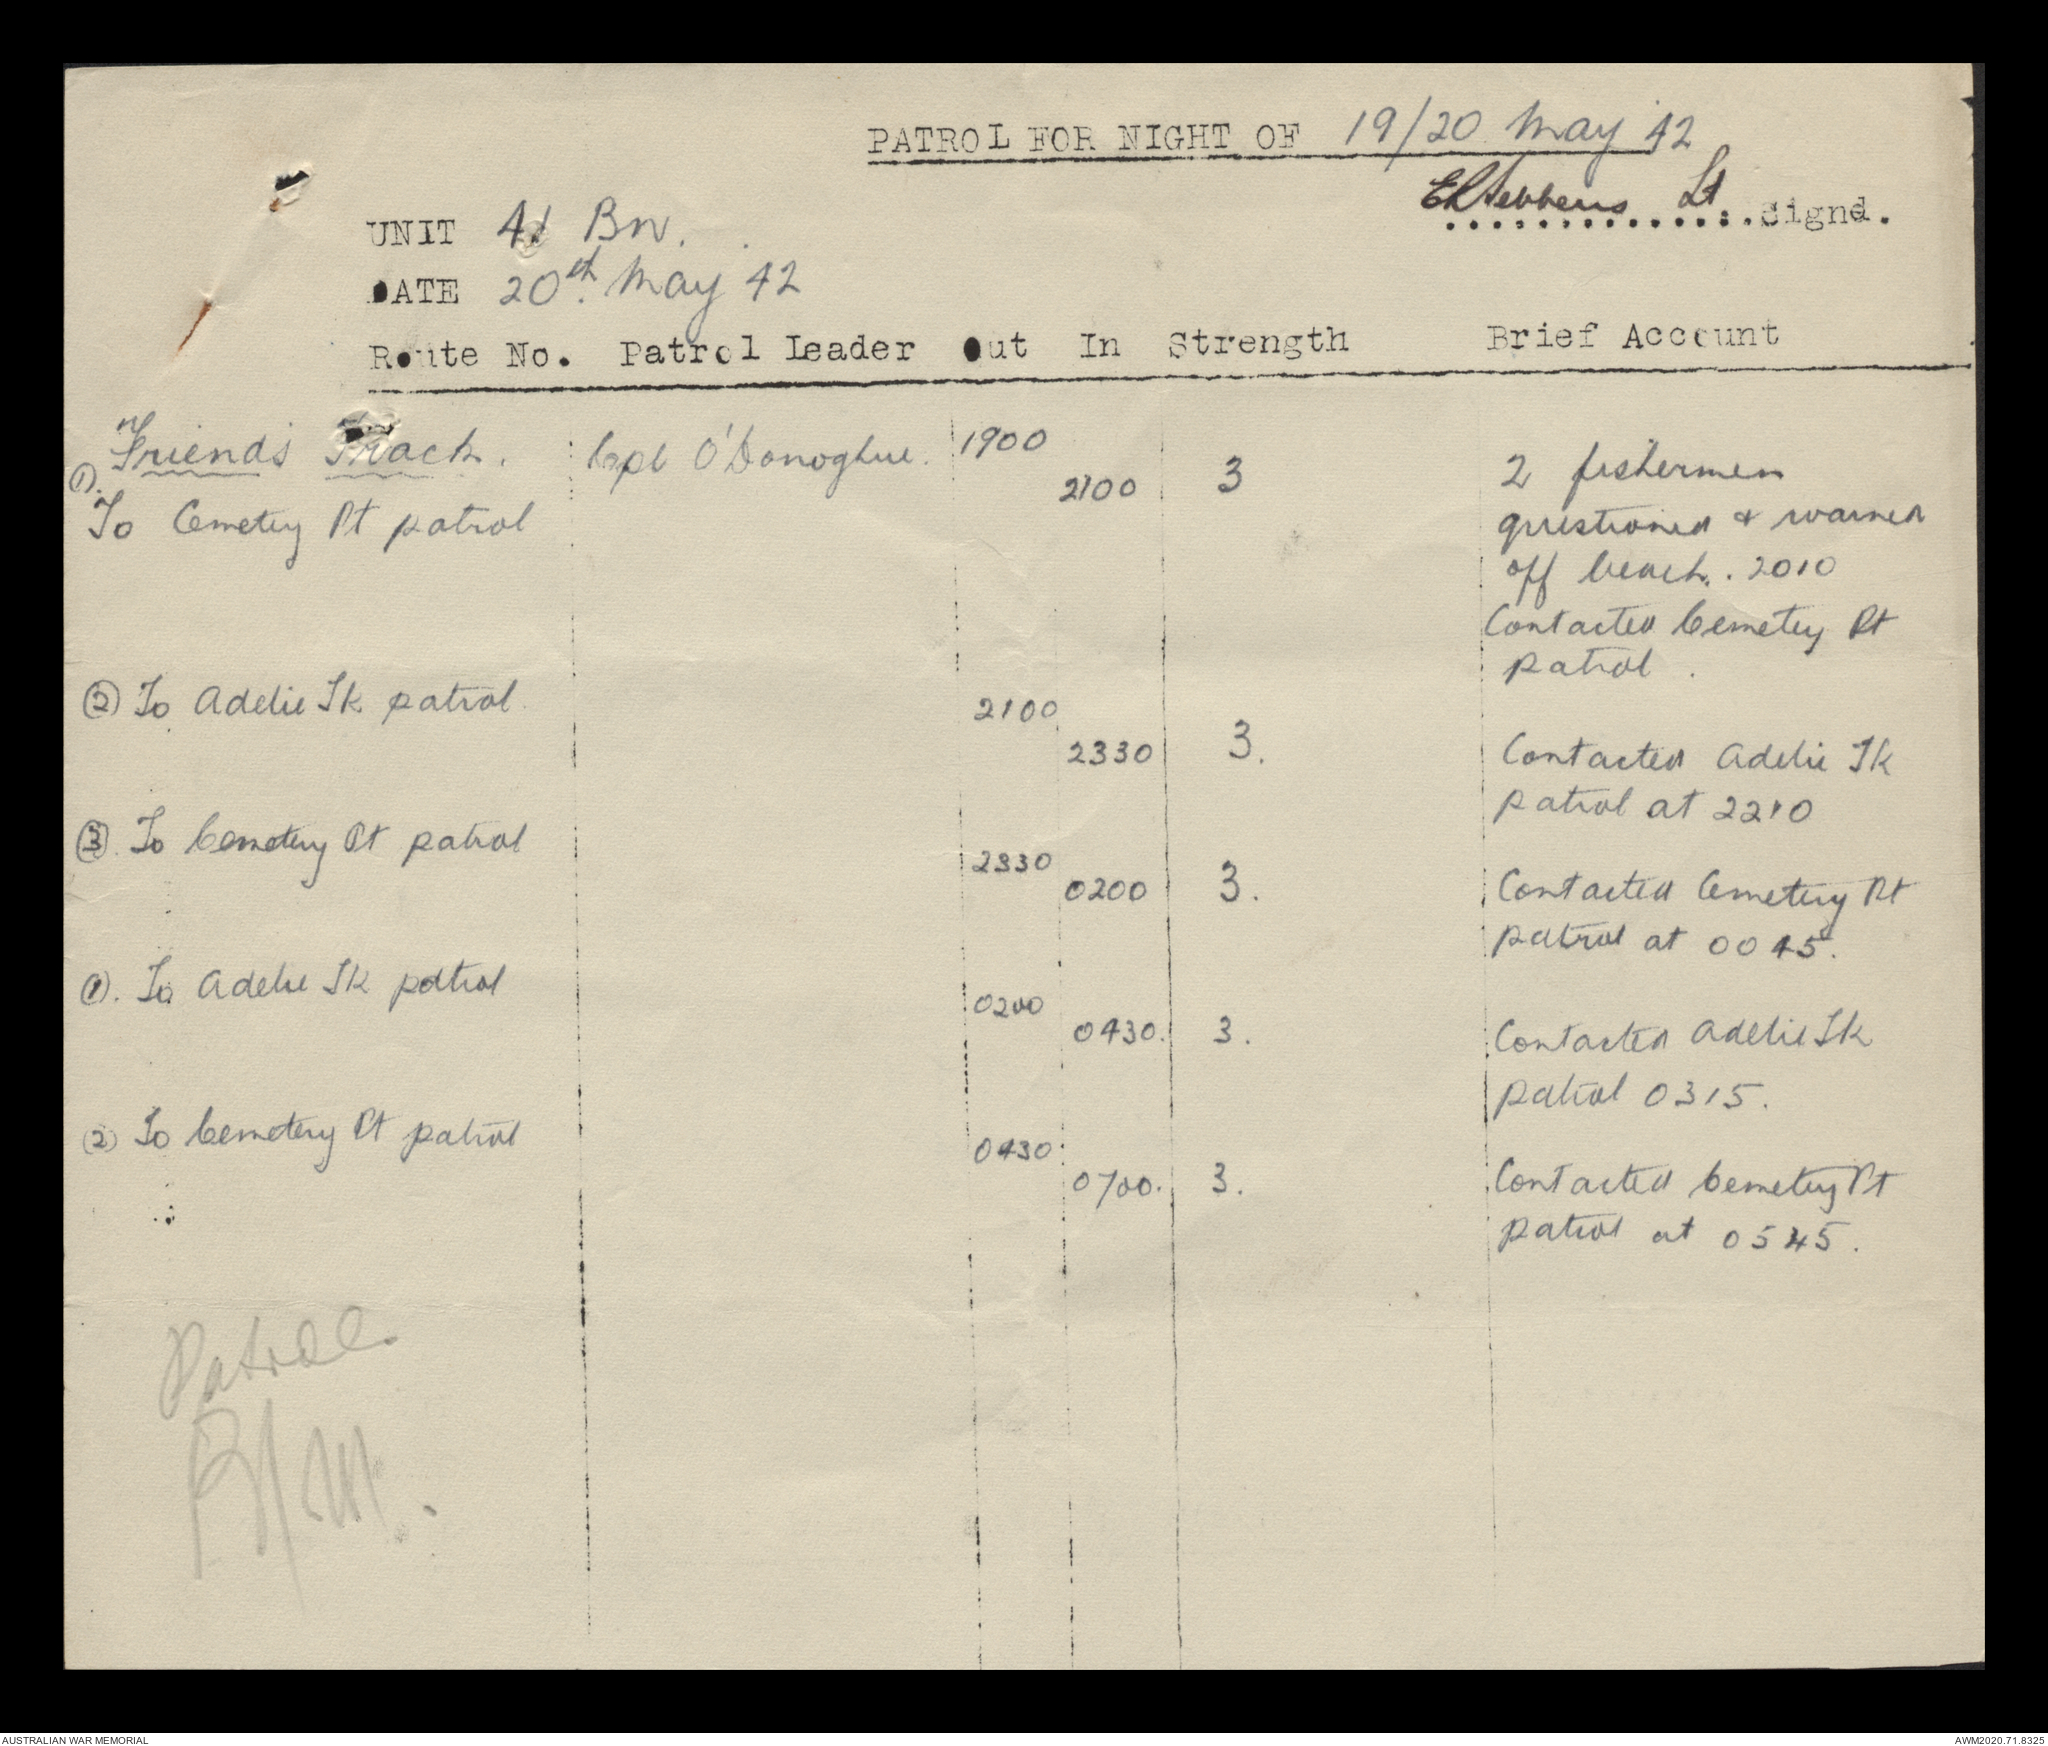 PATROL FOR NIGHT OF 19/20 May 42
Lt. Signd.
UNIT 41 Bn.
DATE 20th May 42
Route No. Patrol Leader Out In Strength Brief Account
Friends Track. Cpl O'Donoghue. 1900 2100 3 2 fishermen
(1). To Cemetery Pt patrol questioned & warned
off beach. 2010
Contacted Cemetery Pt
patrol.
(2) To Adelie Tk patrol 2100 2330 3. Contacted Adelie Tk
patrol at 2210
(3). To Cemetery Pt patrol 2330 0200 3. Contacted Cemetery Pt
patrol at 0045.
(1). To Adelie Tk patrol 0200 0430. 3. Contacted Adelie Tk
patrol 0315.
(2) To Cemetery Pt patrol 0430 0700. 3. Contacted Cemetery Pt
patrol at 0545.
Patrol
AUSTRALIAN WAR MEMORIAL AWM2020.71.8325